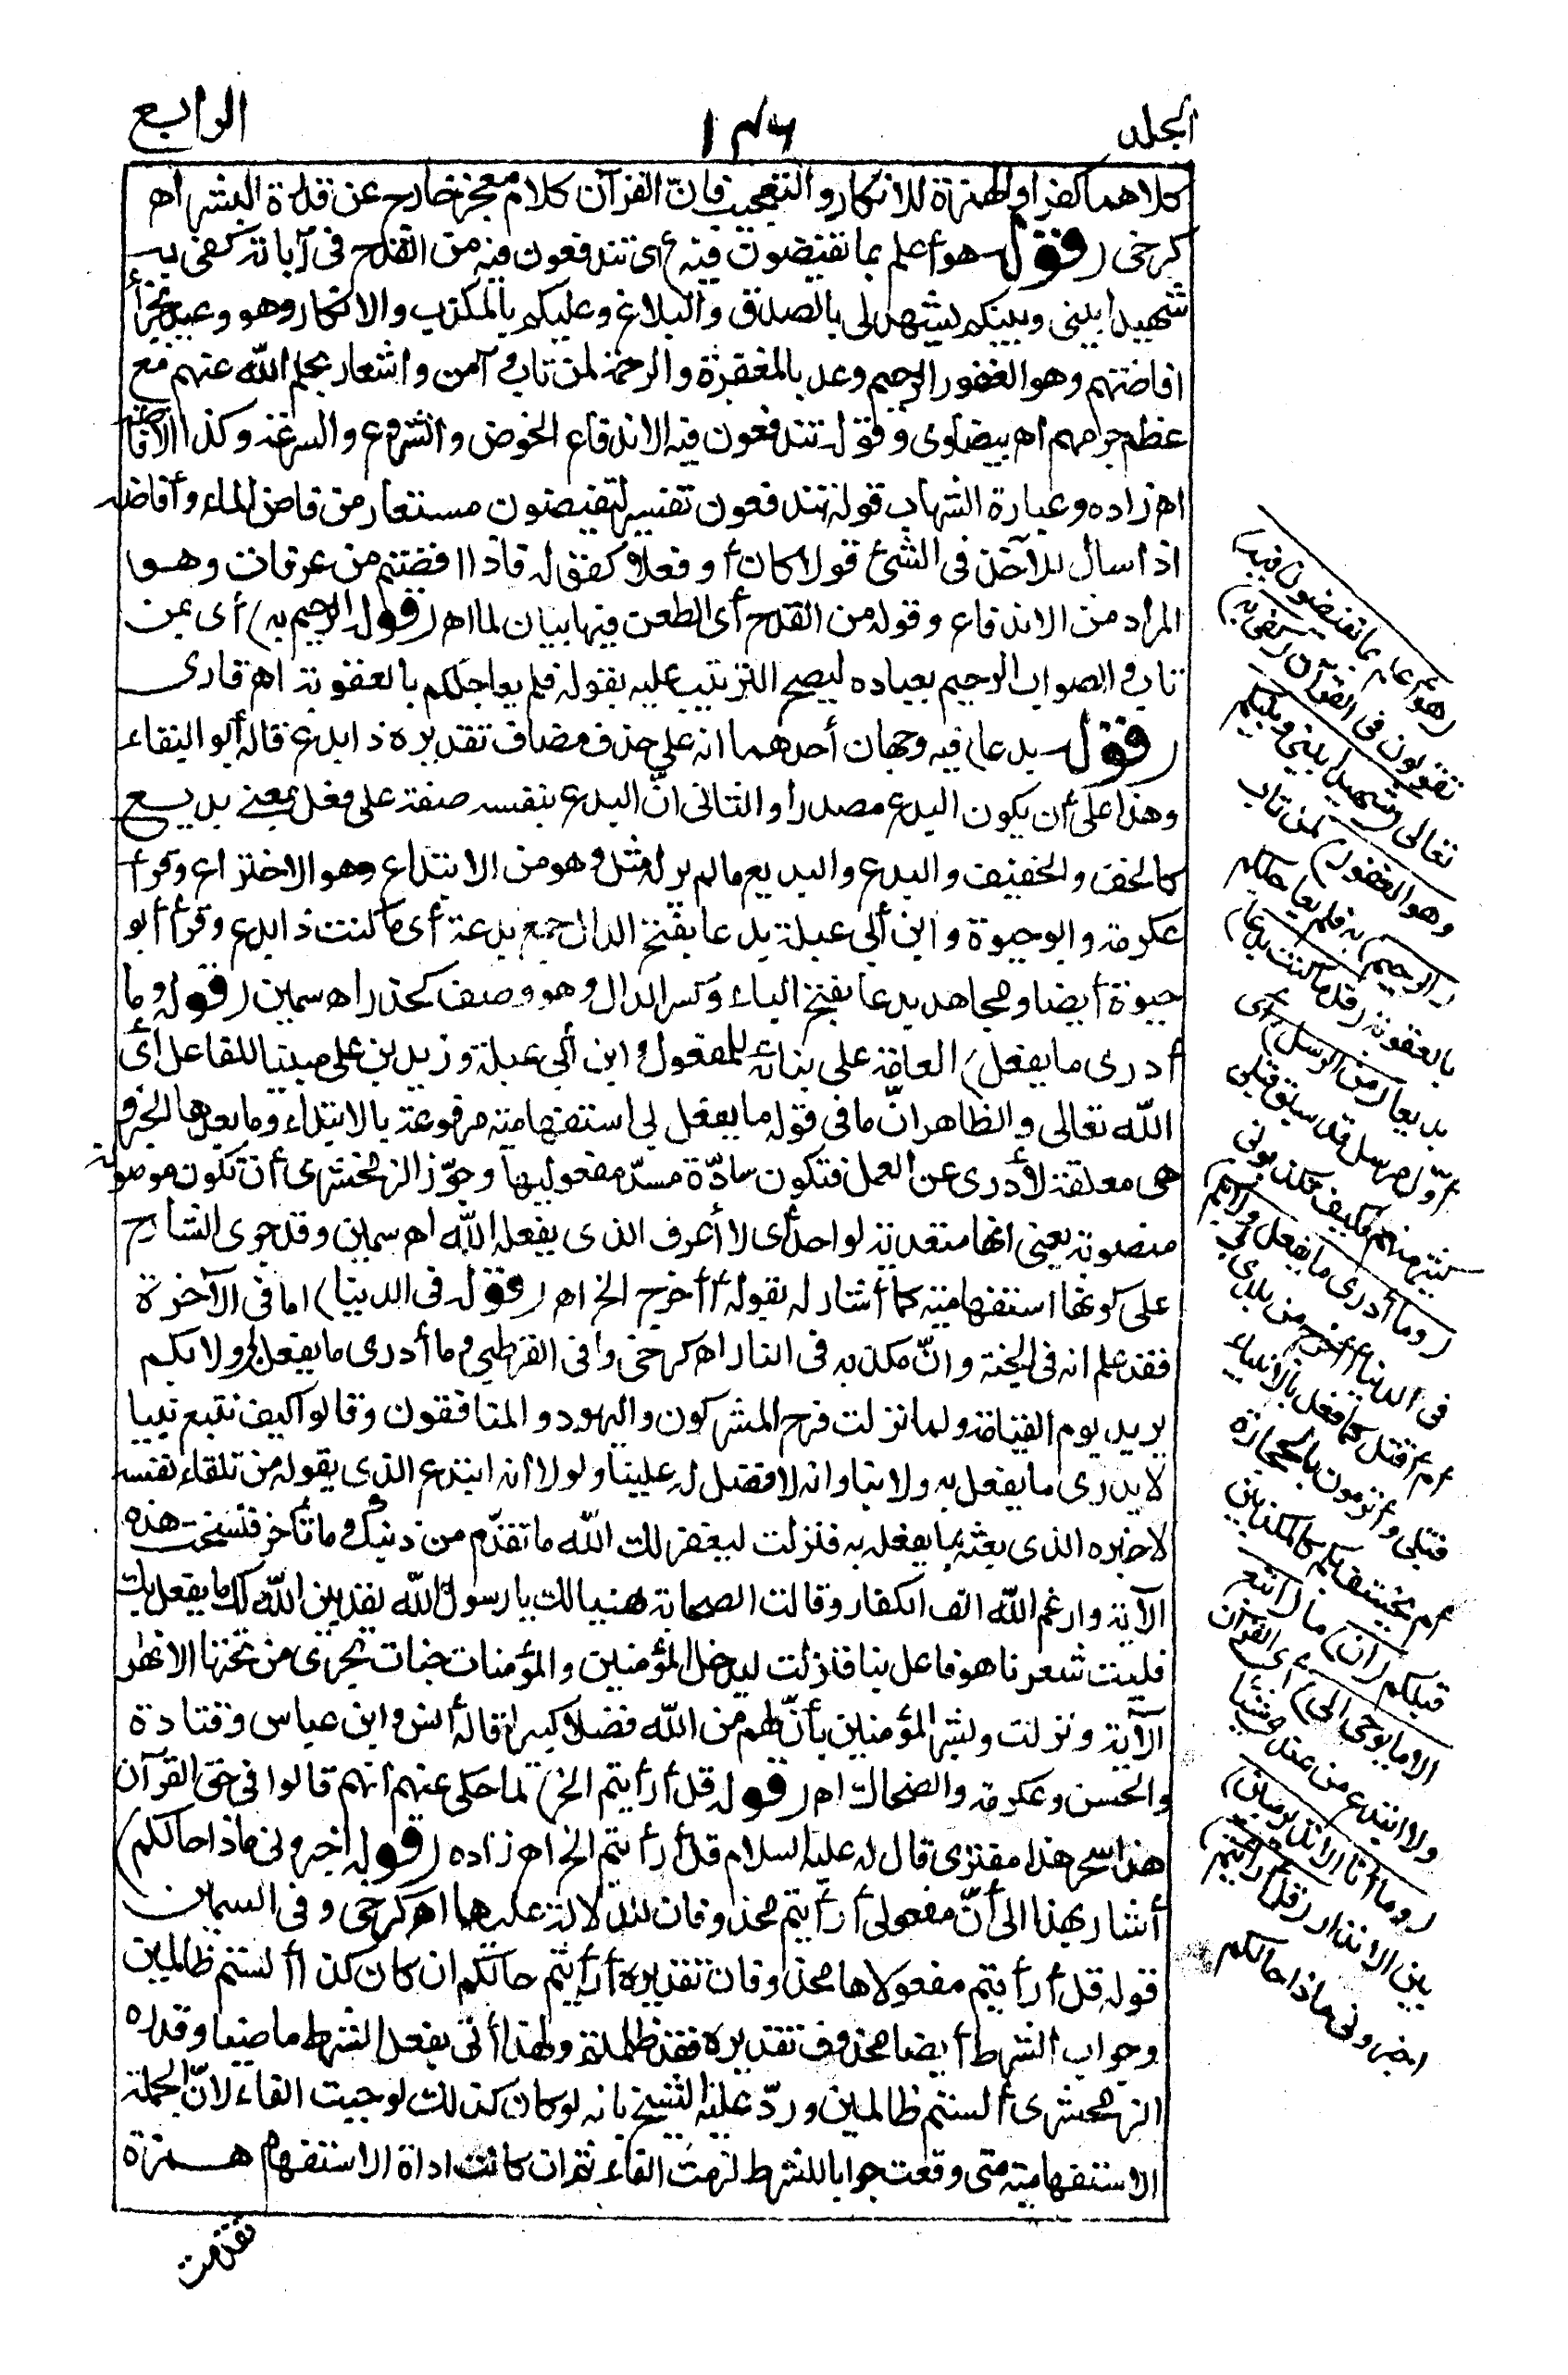 الجلد
١٣٦
الرابع
كلاهما كفر او الهمزة للانكار والتعجيب فانّ القرآن كلام معجز خارج عن قدرة البشر اه
كرخى (قوله هو أعلم بما تفيضون فيه) أى تندفعون فيه من القدح فى آياته كفى به
شهيدا بينى وبينكم ليشهد لى بالصدق والبلاغ وعليكم بالمكذب والانكار وهو وعيد بجزاء
افاضتهم وهو الغفور الرحيم وعد بالمغفرة والرحمة لمن تاب وآمن واشعار بحلم الله عنهم مع
عظم جرامهم اه بيضاوى وقوله تندفعون فيه الاندفاع الخوض والشروع والسرعة وكذا الافاضة
اه زاده وعبارة الشهاب قوله تندفعون تفسير لتفيضون مستعار من فاض الماء وأفاضه
اذا سال للآخذ فى الشئ قولا كان أو فعلا كقوله فاذا افضتم من عرفات وهو
المراد من الاندفاع وقوله من القدح أى الطعن فيها بيان لما اه (قوله الرحيم به) أى بمن
تاب والصواب الرحيم بعباده ليصح الترتيب عليه بقوله فلم يعاجلكم بالعقوبة اه قارى
(قوله بدعا) فيه وجهان أحدهما انه على حذف مضاف تقديره ذا بدع قاله أبو البقاء
وهذا على أن يكون البدع مصدرا والثانى انّ البدع بنفسه صفة على فعل بمعنى بديع
كالخف والخفيف والبدع والبديع مالم ير له مثل وهو من الابتداع وهو الاختراع وقرأ
عكرمة وابو حيوة وابن أبى عبلة بدعا بفتح الدال جمع بدعة أى ما كنت ذا بدع وقرأ أبو
حيوة أيضا ومجاهد بدعا بفتح الباء وكسر الدال وهو وصف كحذر اه سمين (قوله وما
أدرى ما يفعل) العامة على بنائه للمفعول وابن أبى عبلة وزيد بن على مبنيا للفاعل أى
الله تعالى والظاهر انّ ما فى قوله ما يفعل بى استفهامية مرفوعة بالابتداء وما بعدها الخبر و
هى معلقة لأدرى عن العمل فتكون سادّة مسدّ مفعوليها وجوّز الزمخشرى أن تكون موصولة
منصوبة يعنى انها متعدية لواحد أى لا أعرف الذى يفعله الله اه سمين وقد جرى الشارح
على كونها استفهامية كما أشار له بقوله أأخرج الخ اه (قوله فى الدنيا) اما فى الآخرة
فقد علم انه فى الجنة وانّ مكذبه فى النار اه كرخى وفى القرطبى وما أدرى ما يفعل بى ولا بكم
يريد يوم القيامة ولما نزلت فرح المشركون واليهود والمنافقون وقالوا كيف نتبع نبيا
لا يدرى ما يفعل به ولا بنا وانه لا فضل له علينا ولولا انه ابتدع الذى يقوله من تلقاء نفسه
لاخبره الذى بعثه بما يفعل به فنزلت ليغفر لك الله ما تقدّم من ذنبك وما تأخر فنسخت هذه
الآية وارغم الله انف الكفار وقالت الصحابة هنيا لك يا رسول الله لقد بين الله لك ما يفعل بك
فليت شعرنا ما هو فاعل بنا فنزلت ليدخل المؤمنين والمؤمنات جنات تجرى من تحتها الانهار
الآية ونزلت وبشر المؤمنين بأنّ لهم من الله فضلا كبيرا قاله أنس وابن عباس وقتادة
والحسن وعكرمة والضحاك اه (قوله قل أرأيتم الخ) لما حكى عنهم انهم قالوا فى حق القرآن
هذا سحر هذا مفترى قال له عليه السلام قل أرأيتم الخ اه زاده (قوله اخبرونى ماذا حالكم)
أشار بهذا الى أنّ مفعولى أرأيتم محذوفان للدلالة عليهما اه كرخى وفى السمين
قوله قل أرأيتم مفعولاها محذوفان تقديره أرأيتم حالكم ان كان كذا ألستم ظالمين
وجواب الشرط أيضا محذوف تقديره فقد ظلمتم ولهذا أتى بفعل الشرط ماضيا وقدره
الزمخشرى ألستم ظالمين وردّ عليه الشيخ بانه لو كان كذلك لوجبت الفاء لانّ الجملة
الاستفهامية متى وقعت جوابا للشرط لزمت الفاء ثم ان كانت اداة الاستفهام همزة
تقدمت
(هو أعلم بما تفيضون فيه)
تقولون فى القرآن (كفى به)
تعالى (شهيدا بينى وبينكم
وهو الغفور) لمن تاب
(الرحيم) به فلم يعاجلكم
بالعقوبة (قل ما كنت بدعا)
بديعا (من الرسل) أى
أوّل مرسل قد سبق قبلى
كثير منهم فكيف تكذبونى
(وما أدرى ما يفعل بى ولا بكم)
فى الدنيا أأخرج من بلدى
أم أقتل كما فعل بالانبياء
قبلى أو ترمون بالحجارة
أم يخسف بكم كالمكذبين
قبلكم (ان) ما (اتبع
الا ما يوحى الى) أى القرآن
ولا ابتدع من عندى شيئا
(وما أنا الا نذير مبين)
بين الانذار (قل أرأيتم)
اخبرونى ماذا حالكم